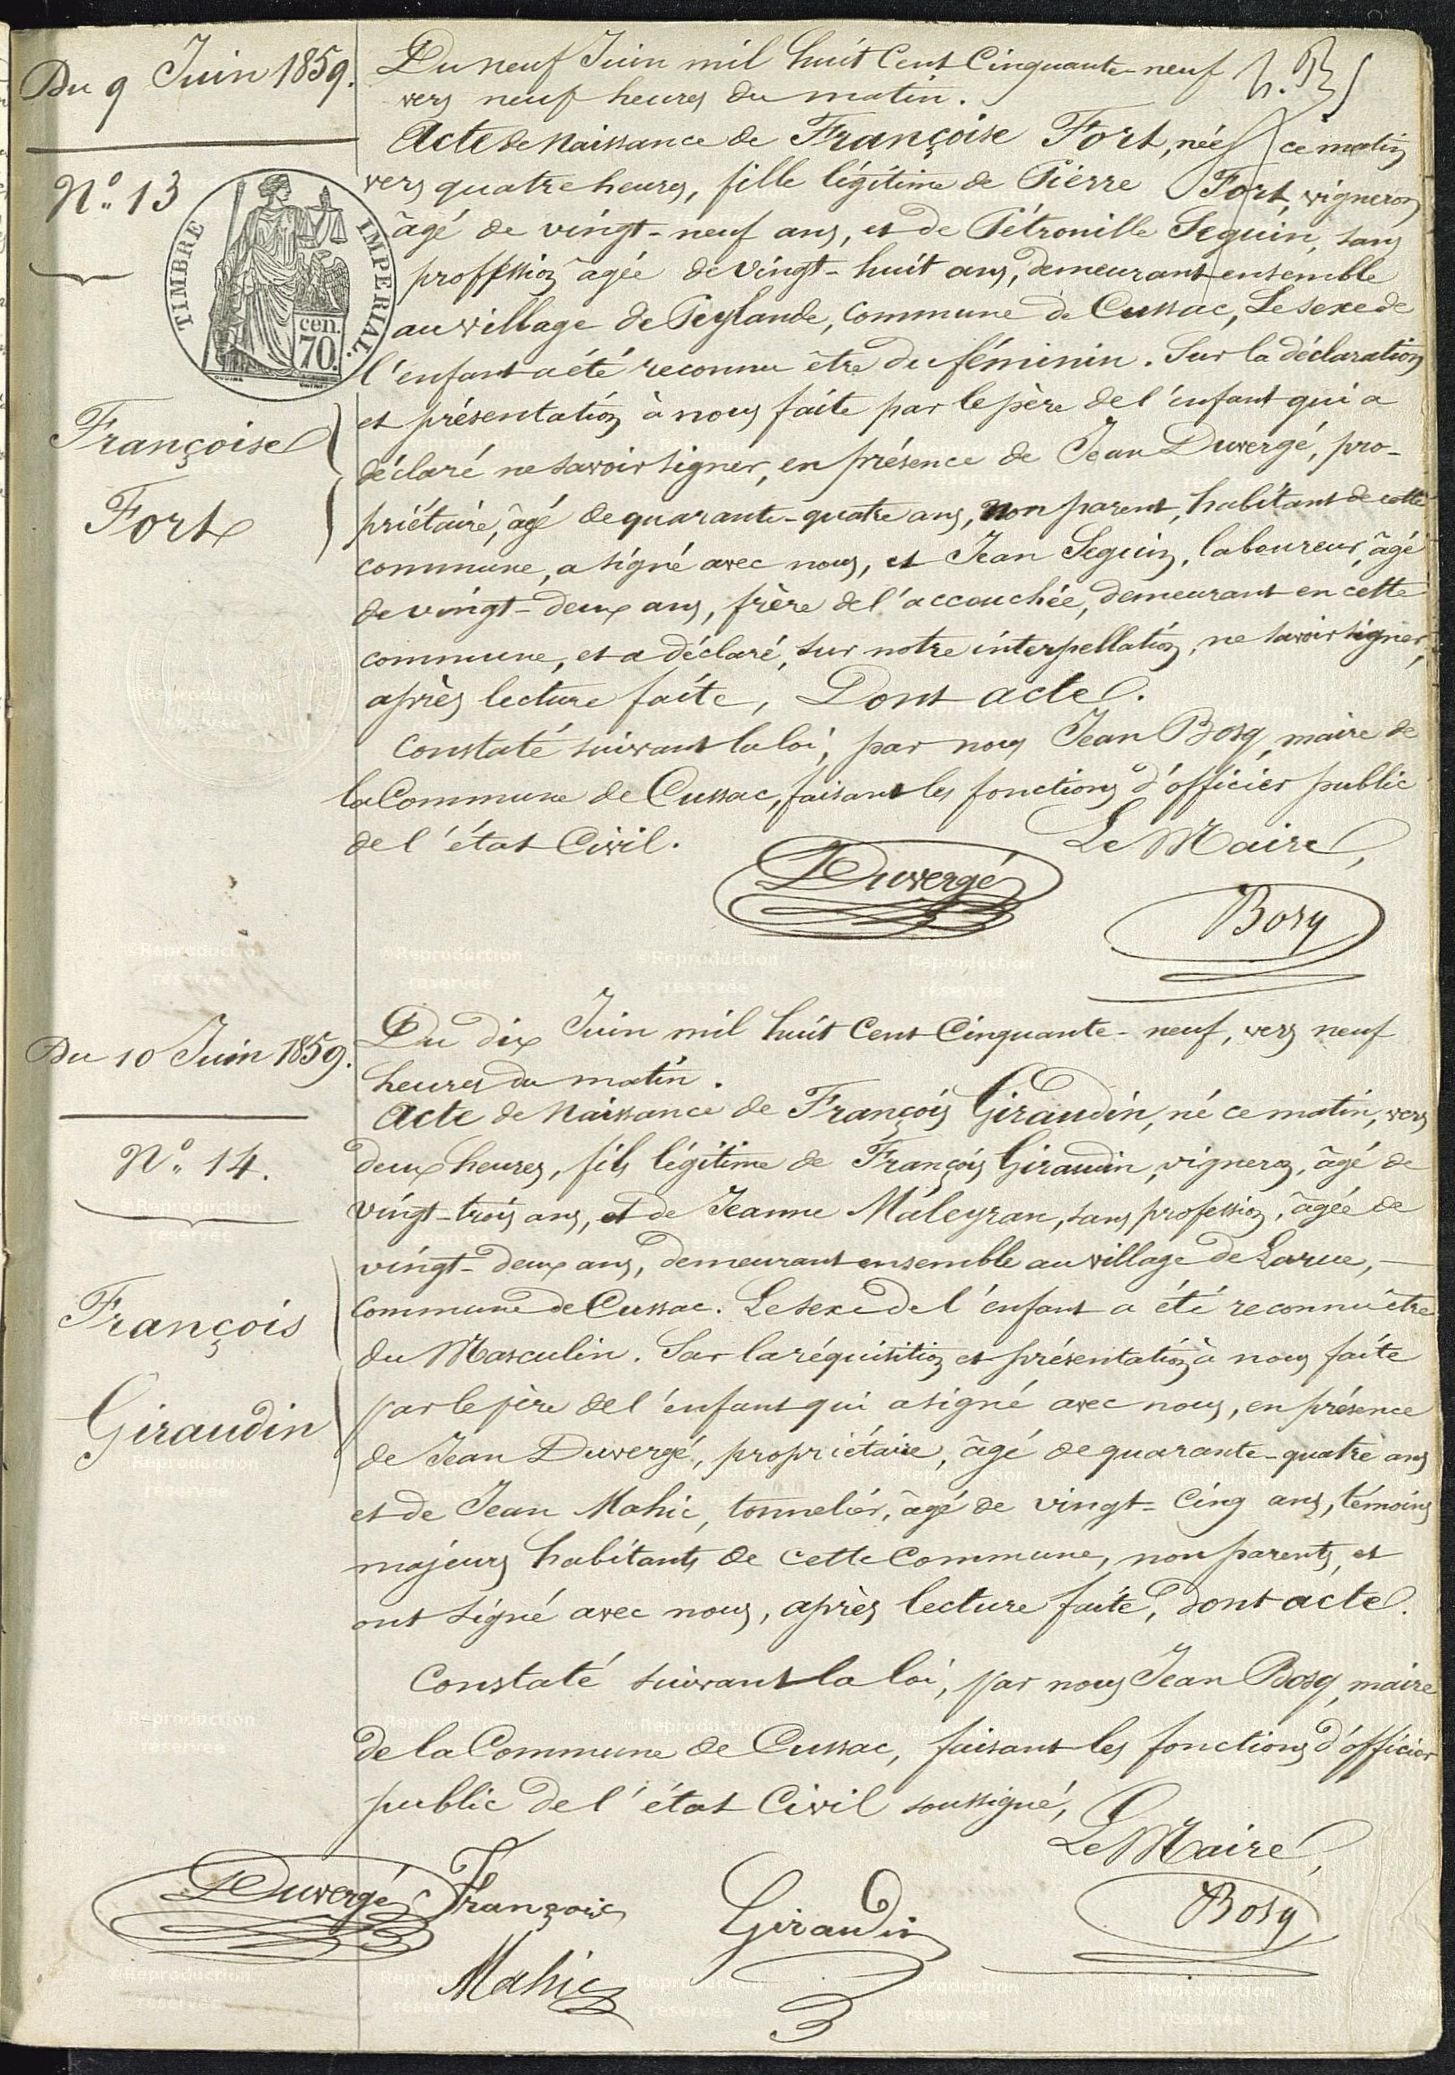 Du 9 Juin 1859.
N° 13
TIMBRE IMPERIAL.
cen.
70.
Françoise
Fort
Du neuf Juin mil huit Cent Cinquante-neuf
vers neuf heures du matin.
Acte de Naissance de Françoise Fort, née ce matin
vers quatre heures, fille légitime de Pierre Fort, vigneron
âgé de vingt-neuf ans, et de Pétronille Seguin, sans
proffssion âgée de vingt-huit ans, demeurant ensemble
au village de Peylande, Commune de Cussac, Le sexe de
l'enfant a été reconnu être du féminin. Sur la déclaration
et présentation à nous faite par le père de l'enfant qui a
déclaré ne savoir signer, en présence de Jean Duvergé, pro-
priétaire, âgé de quarante-quatre ans, non parent, habitant de cette
commune, a signé avec nous, et Jean Seguin, laboureur, âgé
de vingt-deux ans, frère de l'accouchée, demeurant en cette
commune, et a déclaré, sur notre interpellation, ne savoir signer,
après lecture faite, Dont acte.
Constaté suivant la loi, par nous Jean Bosq, maire de
la Commune de Cussac, faisant les fonctions d'officier public
de l'état Civil.
Le Maire,
Duvergé
Bosq
Du 10 Juin 1859.
N° 14.
François
Giraudin
Du dix Juin mil huit Cent Cinquante-neuf, vers neuf
heures du matin.
Acte de Naissance de François Giraudin, né ce matin, vers
deux heures, fils légitime de François Giraudin, vigneron, âgé de
vingt-trois ans, et de Jeanne Maleyran, sans profession, âgée de
vingt-deux ans, demeurant ensemble au village de Larue,
Commune de Cussac. Le sexe de l'enfant a été reconnu être
du Masculin. Sur la réquisition et présentation à nous faite
par le père de l'enfant qui a signé avec nous, en présence
de Jean Duvergé, propriétaire, âgé de quarante-quatre ans
et de Jean Mahic, tonnelier, âgé de vingt-Cinq ans, témoins
majeurs habitants de cette Commune, non parents, et
ont signé avec nous, après lecture faite, dont acte.
Constaté suivant la loi, par nous Jean Bosq, maire
de la Commune de Cussac, faisant les fonctions d'officier
public de l'état Civil soussigné,
Le Maire,
Duvergé
François
Giraudin
Bosq
Mahic